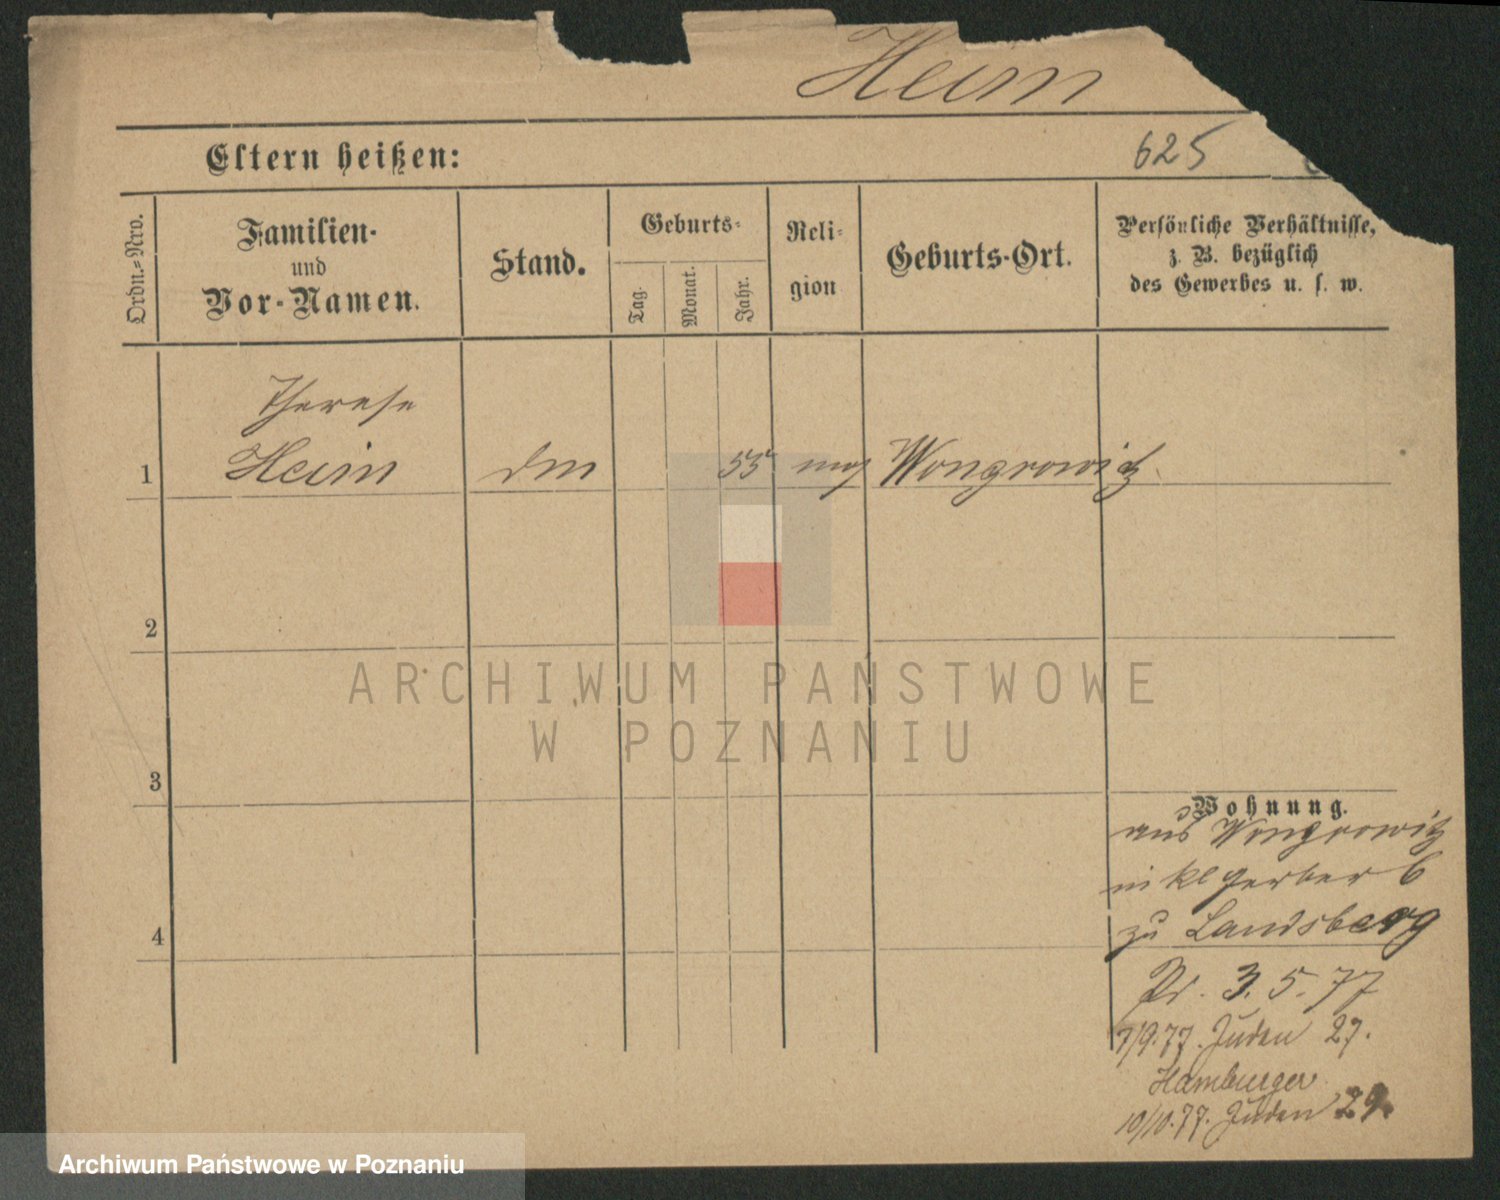 Heim
Eltern heißen:
625
Ordn.-Nro.
Familien-
und
Vor-Namen.
Stand.
Geburts-
Tag.
Monat.
Jahr.
Reli-
gion
Geburts-Ort.
Persönliche Verhältnisse,
z. B. bezüglich
des Gewerbes u. s. w.
Therese
1 Heim 55 mos Wongrowitz
2
3
Wohnung.
aus Wongrowitz
in kl Gerber 6
zu Landsberg
Pr. 3.5.77
7/9.77. Juden 27.
Hamburger
10/10.77. Juden 29.
4
ARCHIWUM PAŃSTWOWE
W POZNANIU
Archiwum Państwowe w Poznaniu